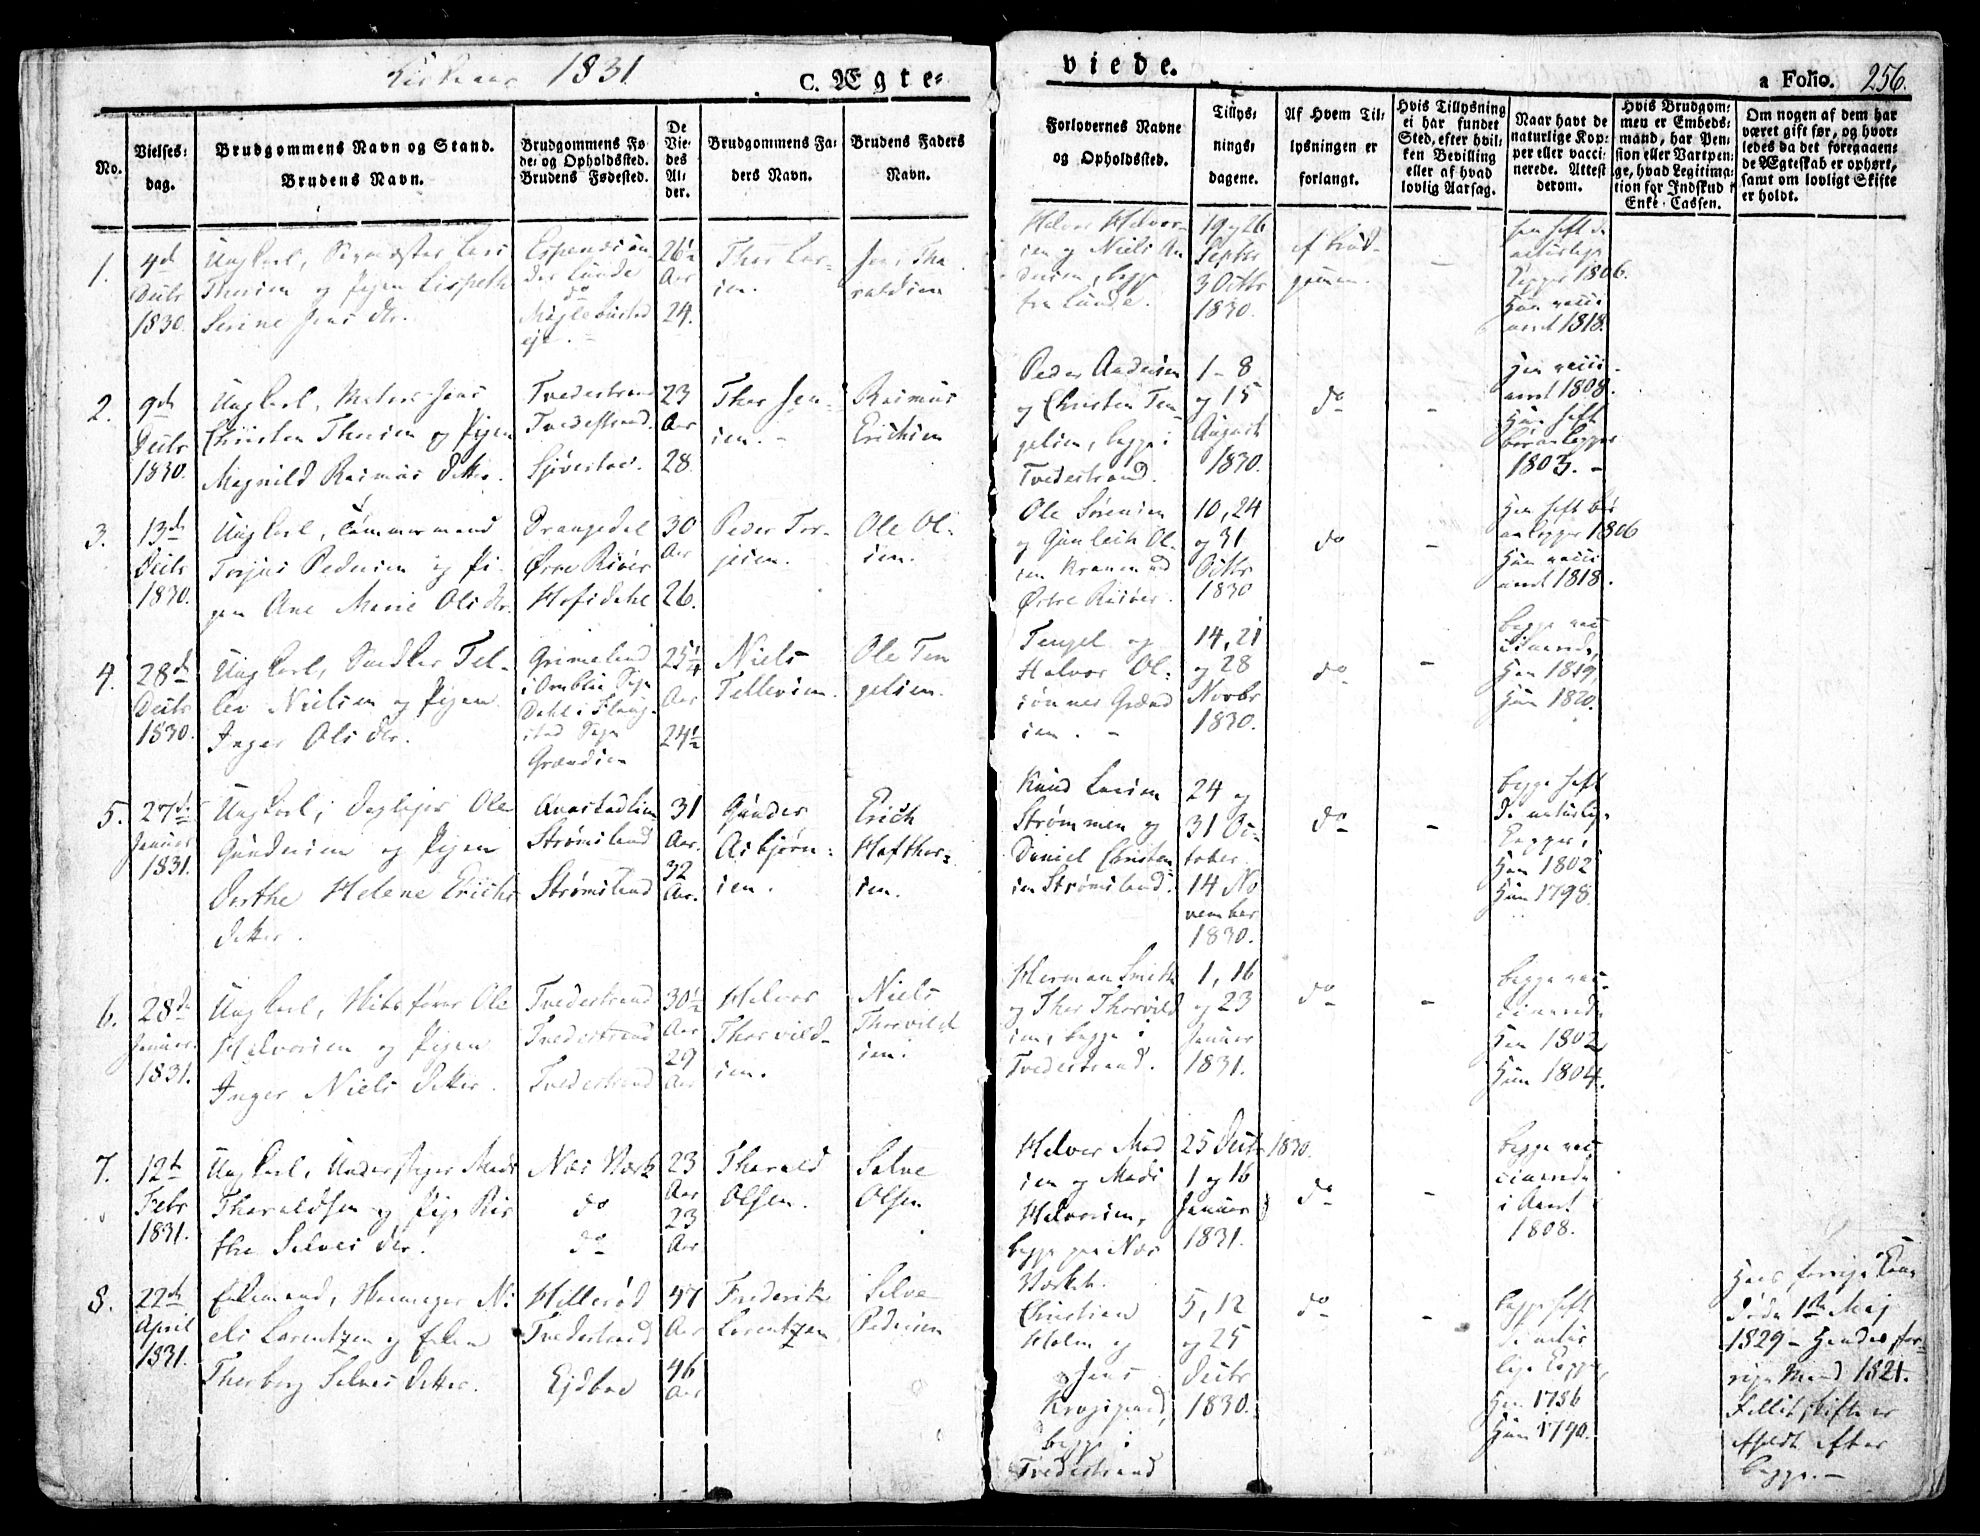 1831
C. Ægte-
viede.
a Folio. 256.
No.
Vielses-
dag.
Brudgommens Navn og Stand.
Brudens Navn.
Brudgommens Fø-
de- og Opholdssted.
Brudens Fødested.
De
Vie-
des
Al-
der.
Brudgommens Fa-
ders Navn.
Brudens Faders
Navn.
Forlovernes Navne
og Opholdssted.
Tillys-
nings-
dagene.
Af Hvem Til-
lysningen er
forlangt.
Hvis Tillysning
ei har fundet
Sted, efter hvil-
ken Bevilling
eller af hvad
lovlig Aarsag.
Naar havt de
naturlige Kop-
per eller vacci-
nerede. Attest
derom.
Hvis Brudgom-
men er Embeds-
mand, har Pen-
sion eller Vartpen-
ge, hvad Legitima-
tion for Indskud i
Enke-Cassen.
Om nogen af dem har
været gift før, og hvor-
ledes da det foregaaen-
de Ægteskab er ophørt,
samt om lovligt Skifte
er holdt.
1.
4de
Decbr
1830.
Ungkarl, Lars
Thorsen og Pigen Lispeth
Serine Jens dtr.
26½
Aar
24.
Thor Lar-
sen.
Jens Tha
raldsen
Halvor Halvor-
sen og Niels An
dersen, begge
fra Lunde.
19 og 26
Septbr
3 Octbr
1830.
af Brud-
gommen.
-
han haft de
naturlige
Kopper 1806.
Hun vacci
neret 1818.
2.
9de
Decbr
1830.
Ungkarl, Matros Jens
Christen Thorsen og Pigen
Magnild Rasmus datter.
Tvedestrand
Tvedestrand.
23
Aar
28.
Thor Jen-
sen. -
Rasmus
Erichsen
Peder Andersen
og Christen Ten-
gelsen, begge i
Tvedestrand.
1 - 8
og 15
August
1830.
do
-
Han vacci-
neret 1808.
Hun haft
Børnekopper
1803. -
3.
13de
Decbr
1830.
Ungkarl, Tømmermand
Torjus Pedersen og Pi-
gen Ane Marie Ols dtr.
Drangedal
Øvre Risøer
30
Aar
26.
Peder Tor-
jesen.
Ole Ol-
sen.
Ole Sørensen
og Gunleik Ol-
sen
10, 24
og 31
Octbr
1830
do
-
Han haft Bør
nekopper 1806
Hun vacci
neret 1818.
4.
28de
Decbr
1830.
Ungkarl, Tel-
lev Nielsen og Pigen
Inger Ols dtr.
25¼
Aar
24½
Niels
Tellevsen.
Ole Ten
gelsen.
Tengel og
Halvor Ol-
sønner
14, 21
og 28
Novbr
1830.
do
-
begge vac
cinerede,
Han 1819,
Hun 1820.
5.
27de
Januar
1831.
Ungkarl, Ole
Gundersen og Pigen
Dorthe Helene Erichs
datter.
Strømsland
Strømsland
31
Aar.
32
Aar.
Gunder
Asbjørn-
sen.
Erich
Hafthor-
sen.
Knud Larsen
Strømmen og
Daniel Christen-
sen Strømsland.
24 og
31 Oc-
tober.
14 No
vember
1830.
do
-
begge haft
de naturlige
Kopper,
Han 1802
Hun 1798.
6.
28de
Januar
1831.
Ungkarl, Ole
Halvorsen og Pigen
Inger Niels datter.
Tvedestrand
Tvedestrand
Tvedestrand
30½
Aar
29
Aar
Halvor
Thorvild-
sen.
Niels
Thorvild
sen.
Herman Smith
og Thor Thorvild
sen, begge i
Tvedestrand.
1, 16
og 23
Januar
1831.
do
-
begge vac-
cinerede
Han 1802
Hun 1804.
7.
12te
Febr
1831.
Ungkarl, Mads
Tharaldsen og Pige Bir
the Selves dtr.
Næs Værk
do
do
23
Aar
23
Aar
Tharald
Olsen.
Selve
Olsen
Halvor Mad
sen og Mads
Halvorsen,
begge paa Næs
Værk.
25 Decbr 1830.
1 og 16
Januar
1831.
do
-
begge vac
cinerede
i Aaret
1808.
8.
22de
April
1831.
Enkemand, Ni
els Lorentzen og Enken
Thorborg Selves datter.
Hillerød
Tvedestrand
Ejdboe
47
Aar
46
Aar
Frederik
Lorentzen
Selve
Pedersen
Christian
Holm og
Jens
begge i
Tvedestrand
5, 12
og 25
Decbr
1830.
do
-
begge haft
de natur
lige Kopper,
Han 1786
Hun 1790.
Hans forrige Kone
døde 1te Maj
1829 - Hendes for-
rige Mand 1821.
Skifte er
afholdt efter
begge. -